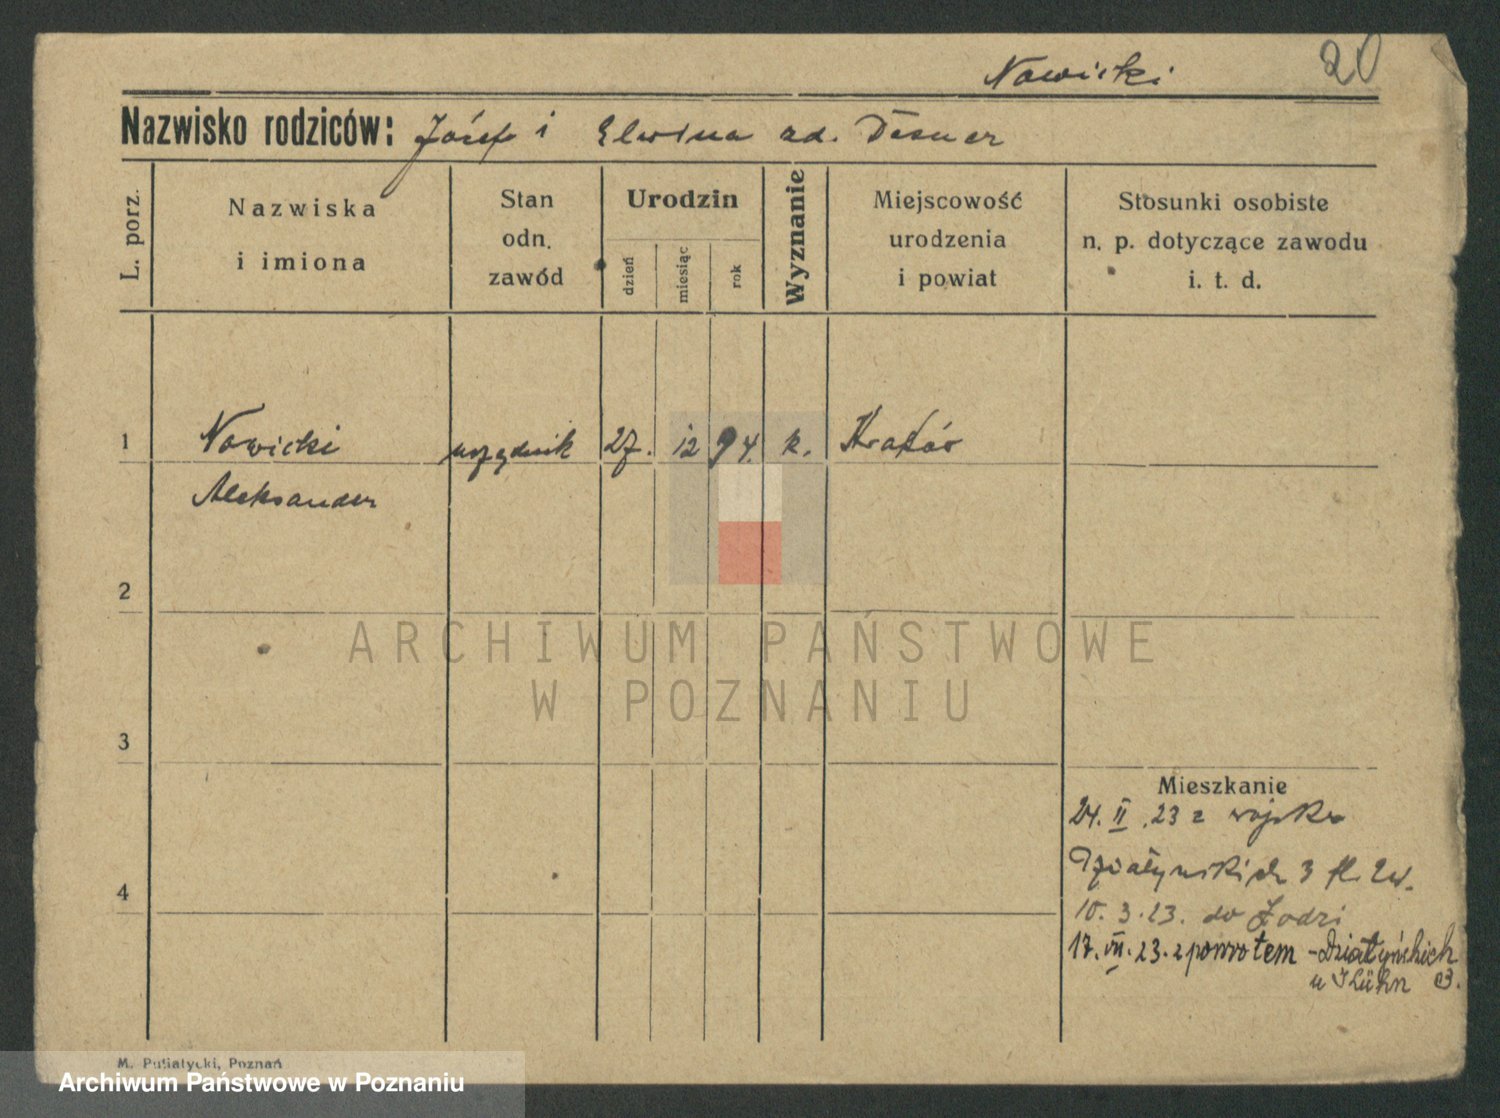 Nowicki 20
Nazwisko rodziców: Józef i Elwina zd. Desner
L. porz.
Nazwiska
i imiona
Stan
odn.
zawód
Urodzin
dzień
miesiąc
rok
Wyznanie
Miejscowość
urodzenia
i powiat
Stosunki osobiste
n. p. dotyczące zawodu
i. t. d.
1 Nowicki urzędnik 27. 12 94. k. Kraków
Aleksander
2
3
4
Mieszkanie
24. II .23 z wojska
Działyńskich 3
10. 3. 23. do Łodzi
17. VII. 23. z powrotem - Działyńskich
u Kühn 3.
M. Putiatycki, Poznań
ARCHIWUM PAŃSTWOWE
W POZNANIU
Archiwum Państwowe w Poznaniu